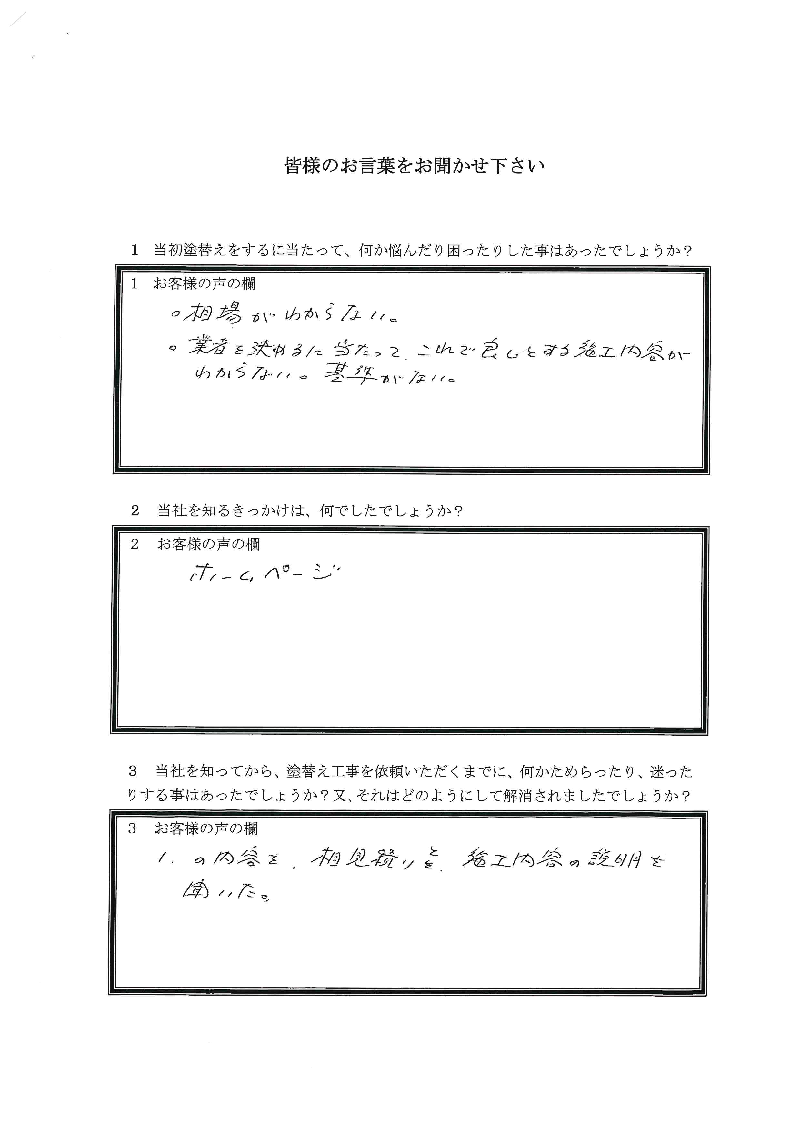 皆様のお言葉をお聞かせ下さい
1 当初塗替えをするに当たって、何か悩んだり困ったりした事はあったでしょうか？
1 お客様の声の欄
○相場がわからない。
○業者を決めるに当たって、これで良しとする施工内容が
わからない。基準がない。
2 当社を知るきっかけは、何でしたでしょうか？
2 お客様の声の欄
ホームページ
3 当社を知ってから、塗替え工事を依頼いただくまでに、何かためらったり、迷った
りする事はあったでしょうか？又、それはどのようにして解消されましたでしょうか？
3 お客様の声の欄
1. の内容を、相見積りを、施工内容の説明を
聞いた。